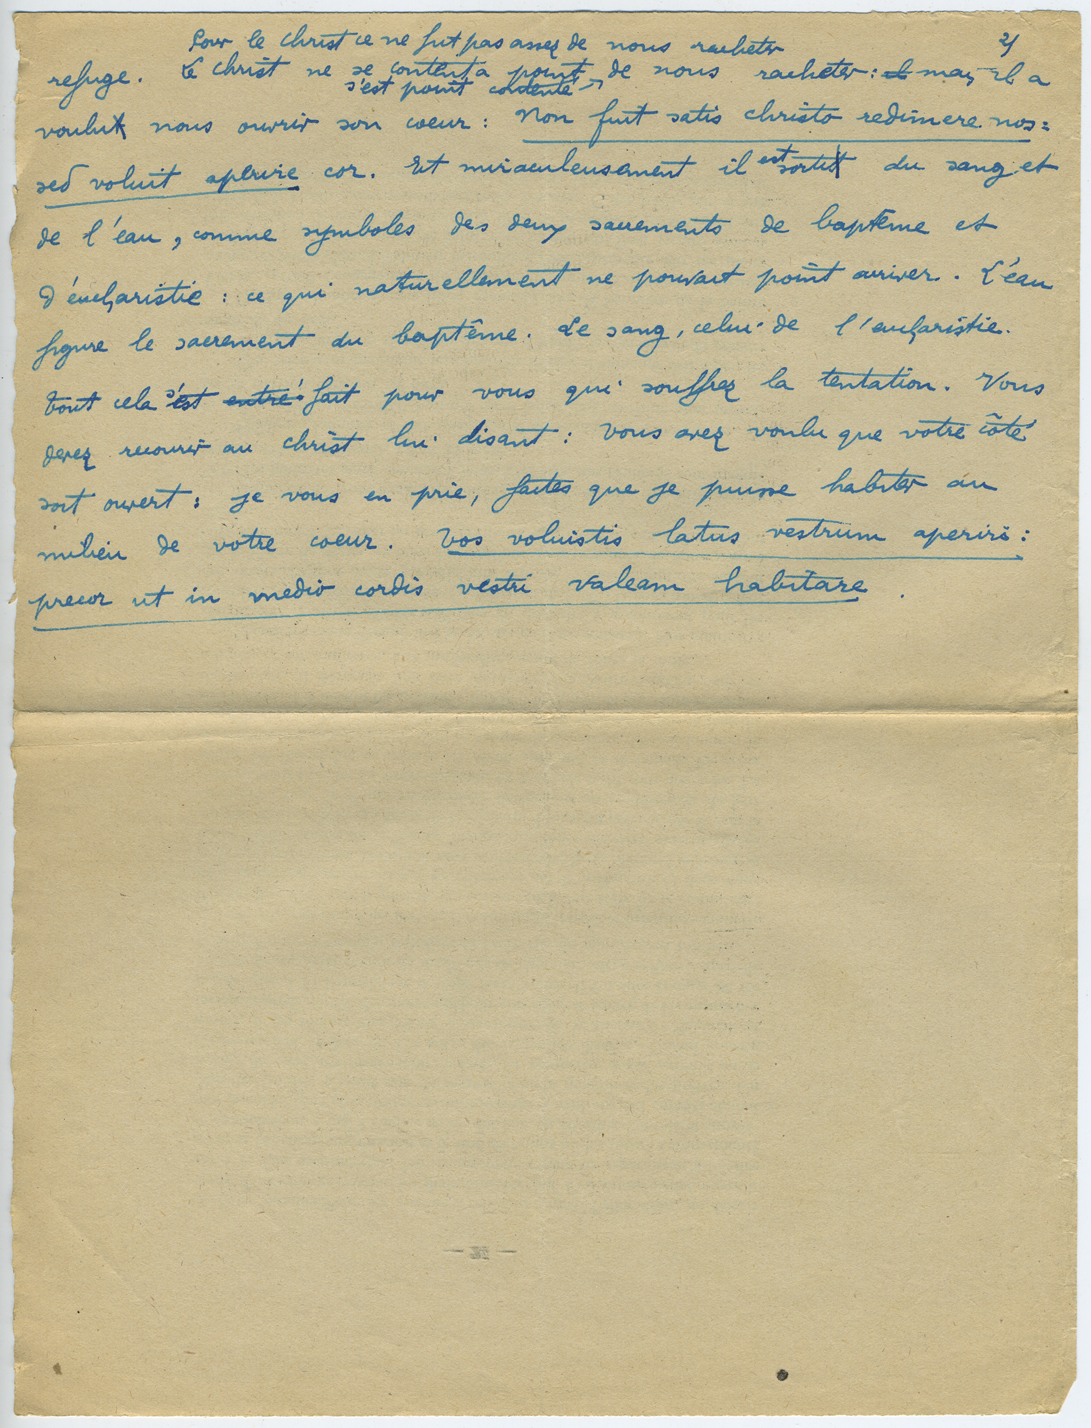 Pour le Christ ce ne fut pas assez de nous racheter
2/
refuge. Le Christ ne se contenta point de nous racheter: il mais Il a
s'est point contenté
voulut nous ouvrir son coeur: Non fuit satis Christo redimere nos:
sed voluit aperire cor. Et miraculeusement il est sortit du sang et
de l'eau, comme symboles des deux sacrements de baptême et
d'eucharistie: ce qui naturellement ne pouvait point arriver. L'eau
figure le sacrement du baptême. Le sang, celui de l'eucharistie.
Tout cela s'est entré fait pour vous qui souffrez la tentation. Vous
devez recourir au Christ lui disant: Vous avez voulu que votre côté
soit ouvert: je vous en prie, faites que je puisse habiter au
milieu de votre coeur. Vos voluistis latus vestrum aperiri:
precor ut in medio cordis vestri valeam habitare.